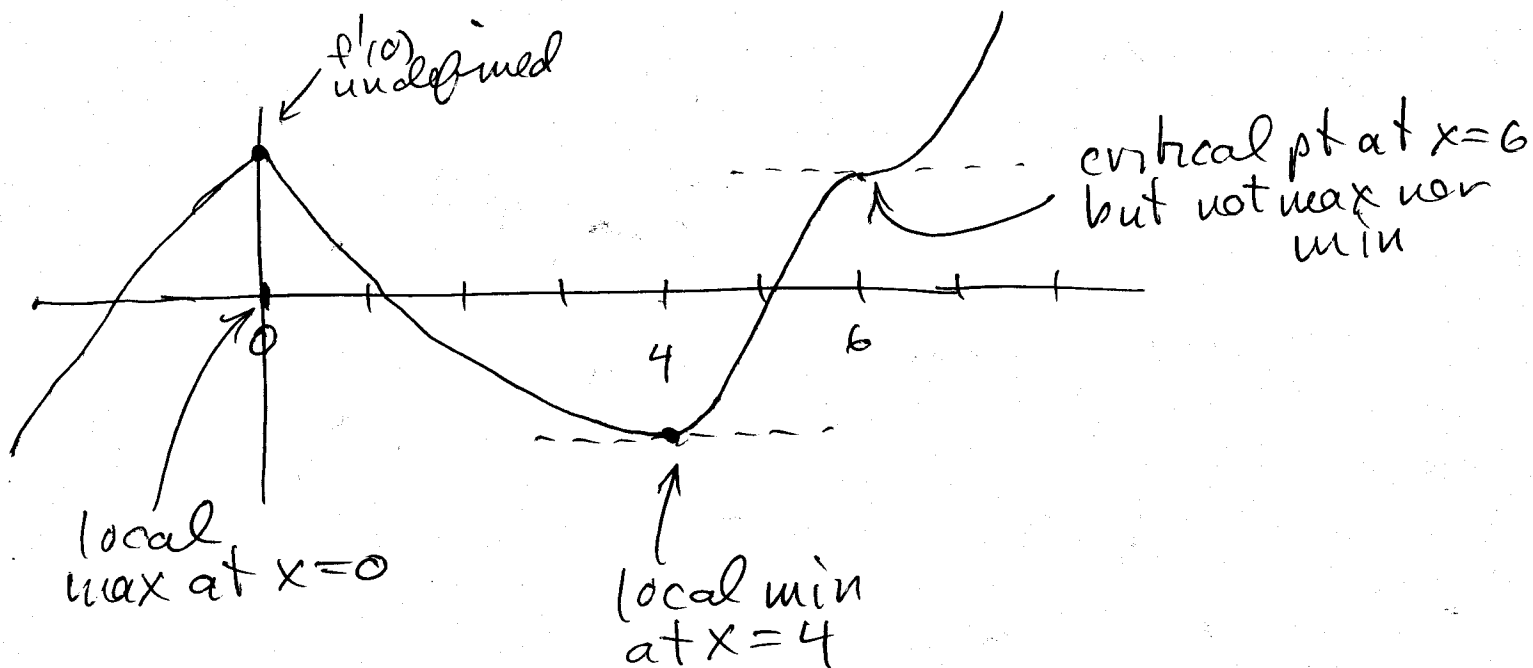 f'(0)
undefined
critical pt at x=6
but not max nor
min
0
4
6
local
max at x=0
local min
at x=4